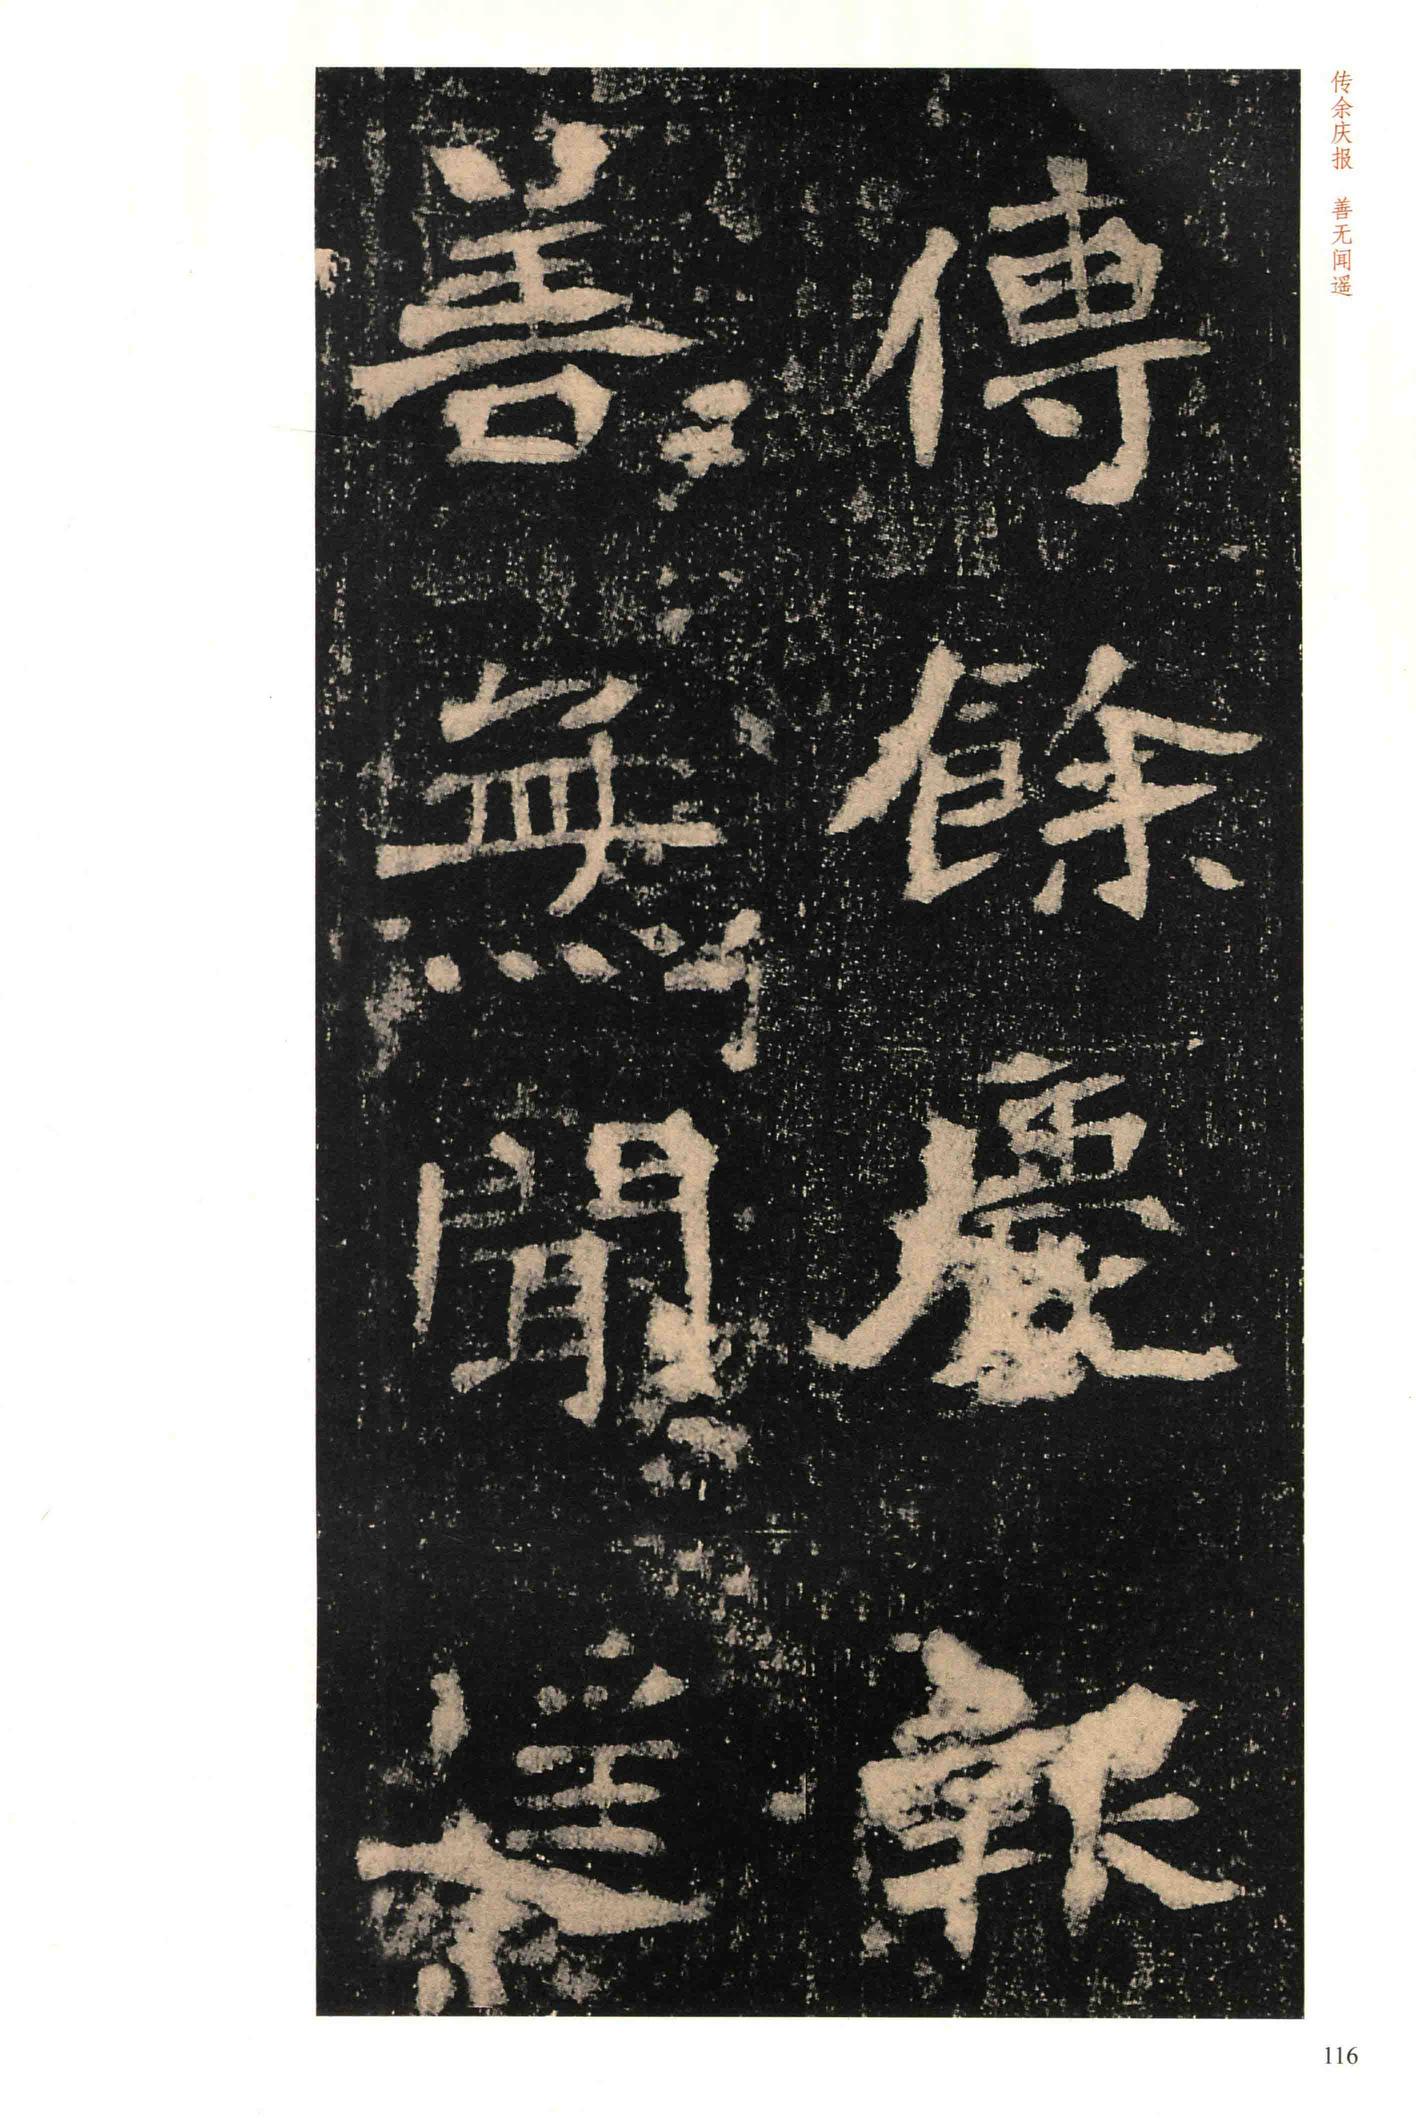 传余庆报 善无闻遥
傳餘慶報
善無聞遥
116